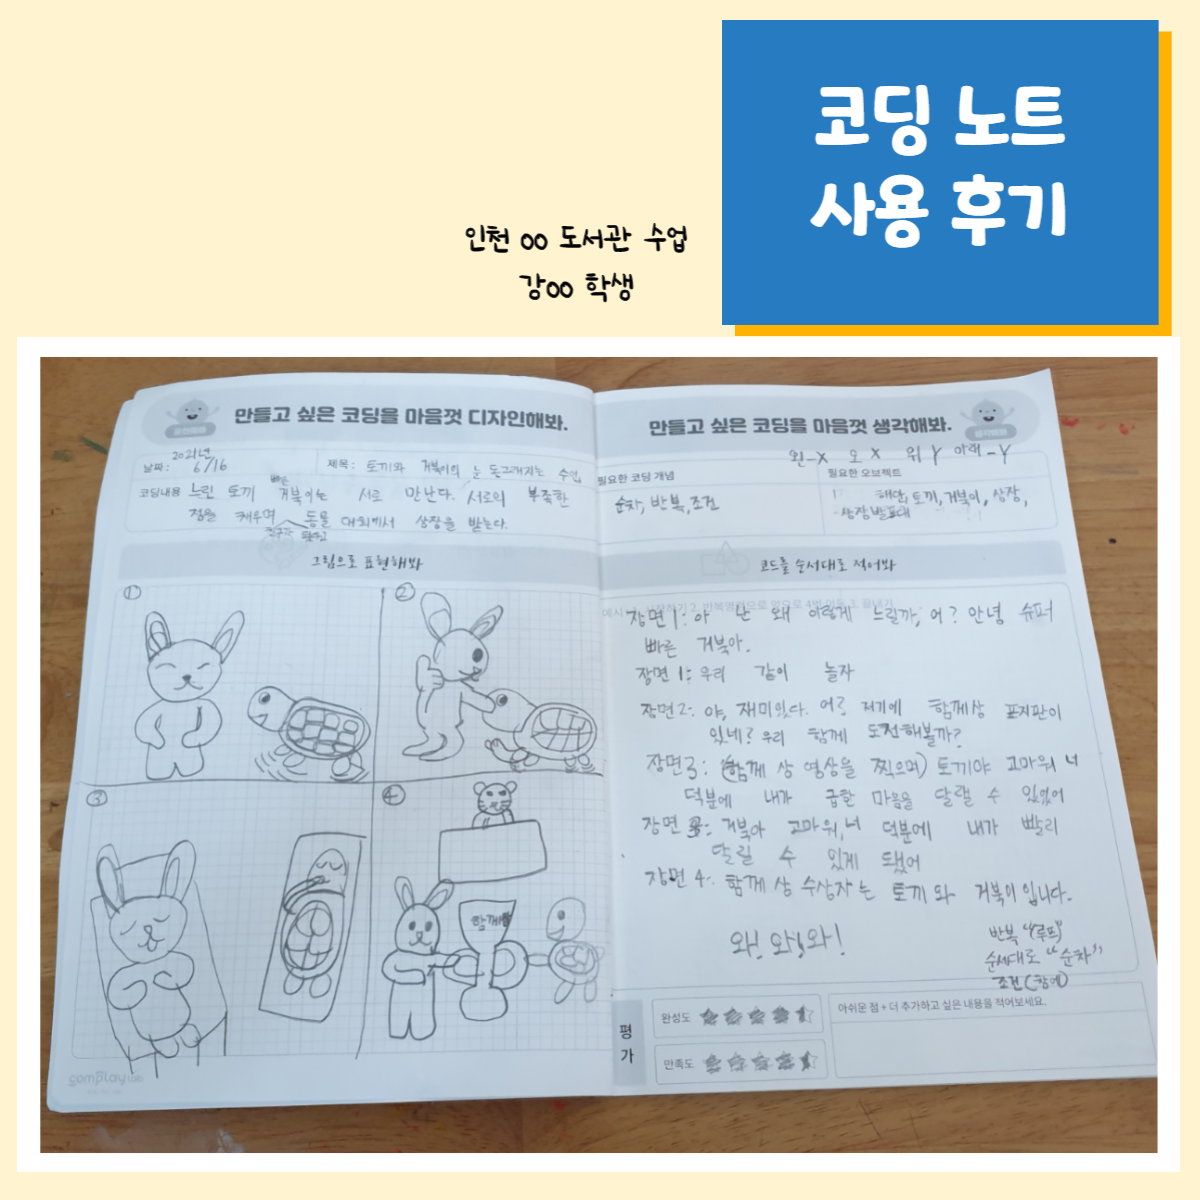 코딩 노트
사용 후기
인천 00 도서관 수업
강00 학생
만들고 싶은 코딩을 마음껏 디자인해봐.
날짜: 2021년 6/16
제목: 토끼와 거북이의 눈 동그래지는 수업
코딩내용 느린 토끼 빠른 거북이는 서로 만난다. 서로의 부족한
점을 채우며 친구가 되고 동물 대회에서 상장을 받는다.
그림으로 표현해봐
①
②
③
④
함께상
comPlay
만들고 싶은 코딩을 마음껏 생각해봐.
왼-X 오 X 위 Y 아래 -Y
필요한 코딩 개념
순차, 반복, 조건
필요한 오브젝트
토끼, 거북이, 상장,
상장발표대
코드를 순서대로 적어봐
장면1: 아 난 왜 이렇게 느릴까, 어? 안녕 슈퍼
빠른 거북아.
장면1: 우리 같이 놀자
장면2: 야, 재미있다. 어? 저기에 함께상 표지판이
있네? 우리 함께 도전해볼까?
장면3: (함께 상 영상을 찍으며) 토끼야 고마워 너
덕분에 내가 급한 마음을 달랠 수 있었어
장면3: 거북아 고마워, 너 덕분에 내가 빨리
달릴 수 있게 됐어
장면4: 함께 상 수상자는 토끼와 거북이입니다.
와! 와! 와!
반복 "(루프)"
순서대로 "순차"
조건
평가
완성도
만족도
아쉬운 점 + 더 추가하고 싶은 내용을 적어보세요.